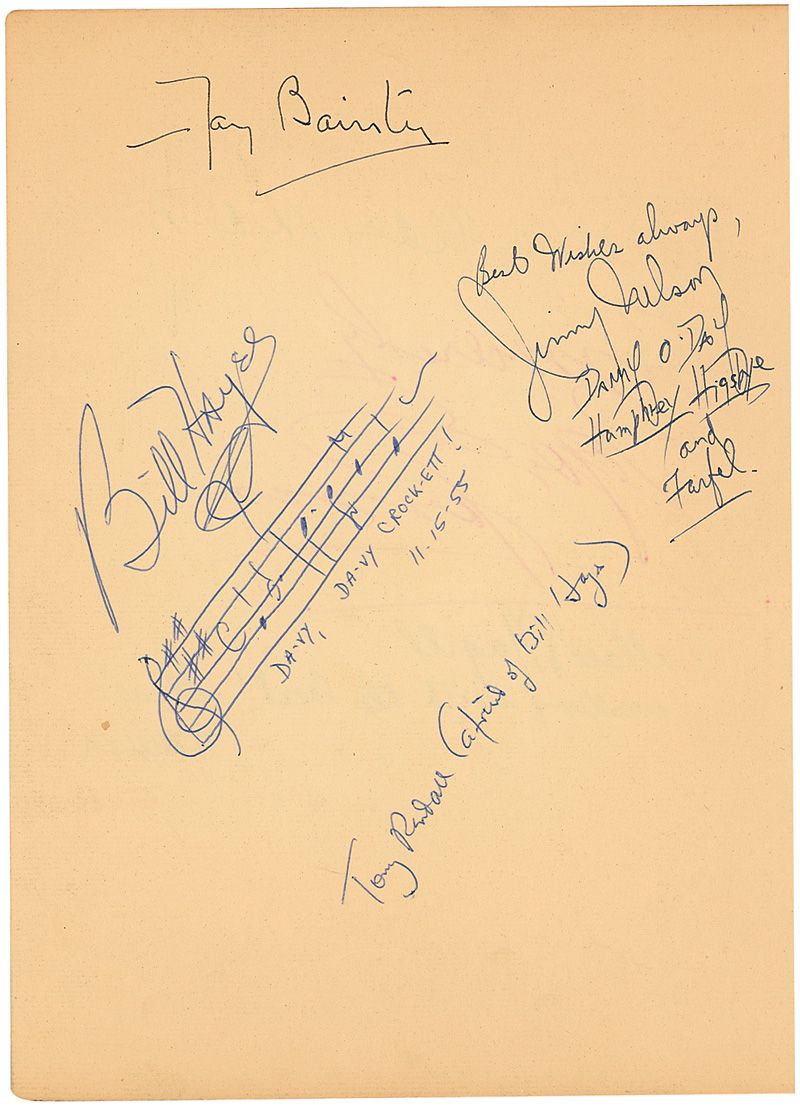 Fay Bainter
Best Wishes always,
Jimmy Nelson
Danny O'Day
Humphrey Higsbye
and
Farfel.
Bill Hayes
DA-VY, DA-VY CROCK-ETT!
11-15-55
Tony Randall (a friend of Bill Hayes)